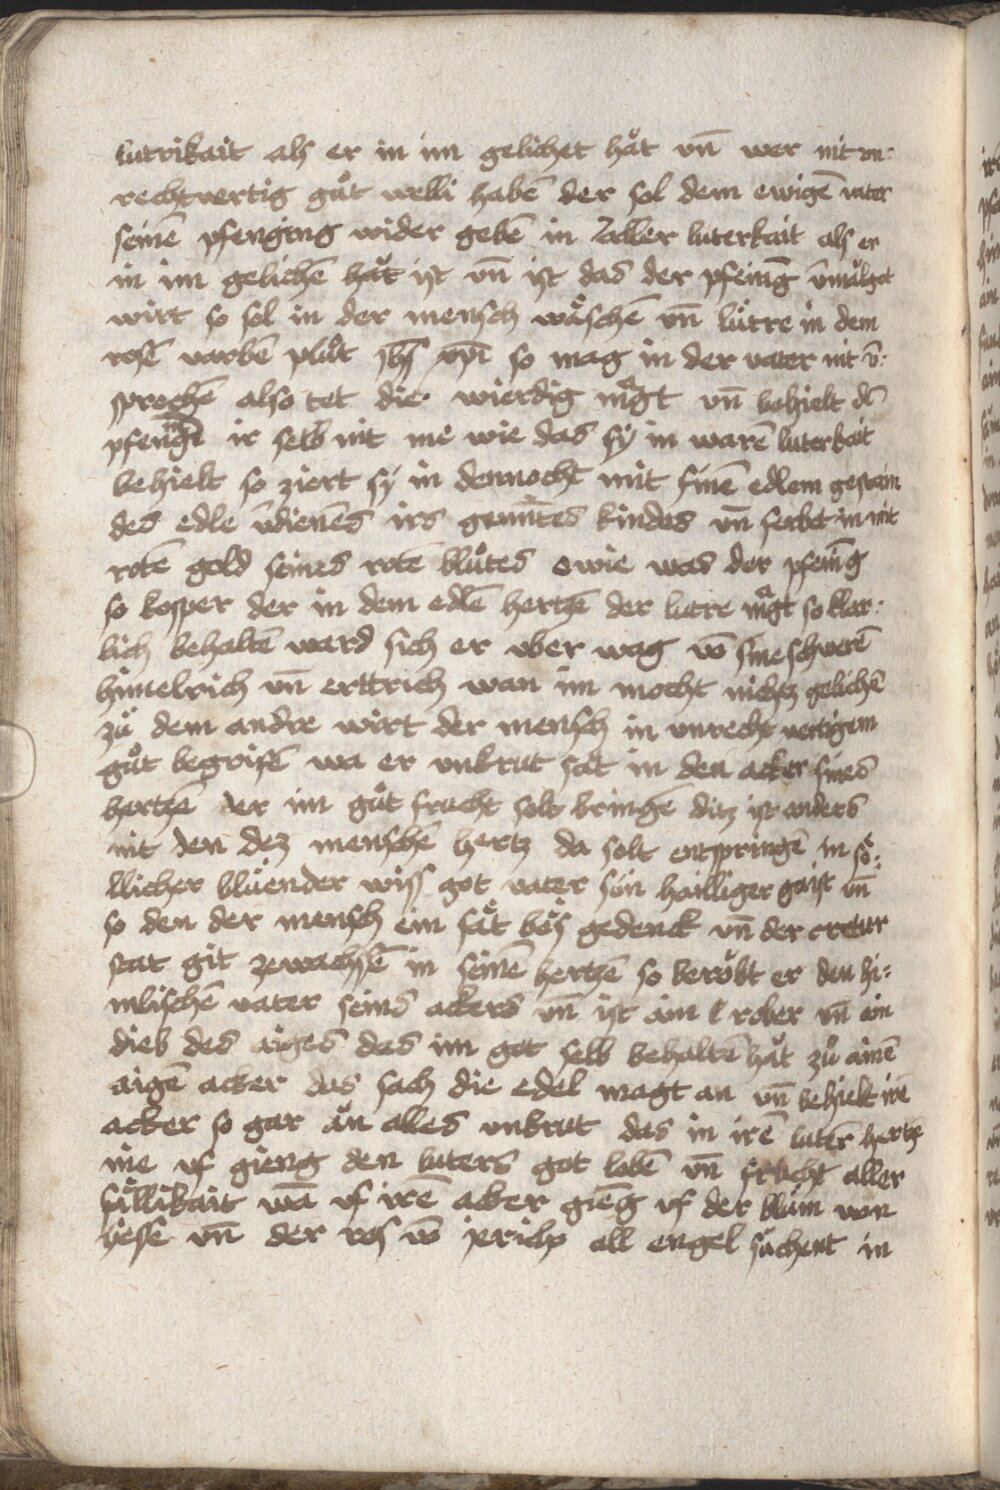 lutrikait als er in im gelichet hǎt vn̄ wer nit vn-
rechtvertig gůt welli habē der sol dem ewigē vater
seinē pfenging wider gebē in aller luterkait als er
in im gelichē hǎt ist vn̄ ist das der pfening v̄mǎlget
wirt so sol in der mensch wǎschē vn̄ lůtre in dem
rosē varbē plůt ihs xpi so mag in der vater nit v̄-
sprechē also tet die wierdig mͣgt vn̄ behielt dē
pfening ir selb nit me wie das sy in warē luterkait
behielt so ziert sy in dennocht mit sinē edlem gestain
des edlē v̄dienes irs geminten kindes vn̄ ferbet in mit
rotē gold seines rotē blůtes ewie was der pfenīg
so kosper der in dem edlē hertzē der lutre mͣgt so klar-
lich behaltē ward sich er vber wag vō sine schwerē
himelrich vn̄ erttrich wan im mocht nichtz gelichē
zů dem andre wirt der mensch in vnrecht vertigem
gůt begrifē wa er vnkrut sǎt in den acker sines
hertzē der im gůt frucht solt bringē ditz ist anders
nit den dez menschē hertz da solt entspringē in sǒ-
llicher blůender wiss got vater sůn hailliger gaist vn̄
so den der mensch ein sǎt bǒs gedenck vn̄ der cretur
stat git zewachsē in seinē hertzē so berǒbt er den hi-
mlischē vater seins ackers vn̄ ist ain rober vn̄ ein
dieb des aiges das im got selb behaltē hǎt zů ainē
aigē acker das sach die edel magt an vn̄ behielt irē
acker so gar ǎn alles vnkrut das in irē lutēr hertz
nie vf gieng den luters got lobē vn̄ frucht aller
sǎllikait wā vf irē acker giēg vf der blům von
yesse vn̄ der ros vō jericho all engel sůchent in